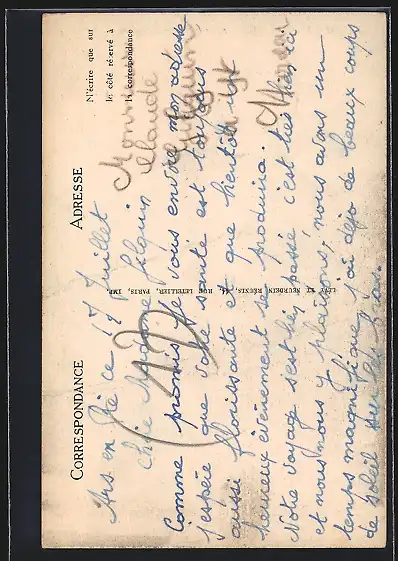 CORRESPONDANCE
ADRESSE
N'écrire que sur
le côté réservé à
la correspondance
LÉVY ET NEURDEIN RÉUNIS, 44, RUE LETELLIER, PARIS, IMP.
Monsieur
Claude
Ars en Ré ce 17 Juillet
Chère Madame
Comme promis je vous envoie mon adresse
j'espère que votre santé est toujours
aussi florissante et que bientôt un
heureux evènement se produira.
Notre voyage s'est très passé c'est très bien ici
et nous nous y plaisons, nous avons un
temps magnifique j'ai déjà de beaux coups
de soleil sur les